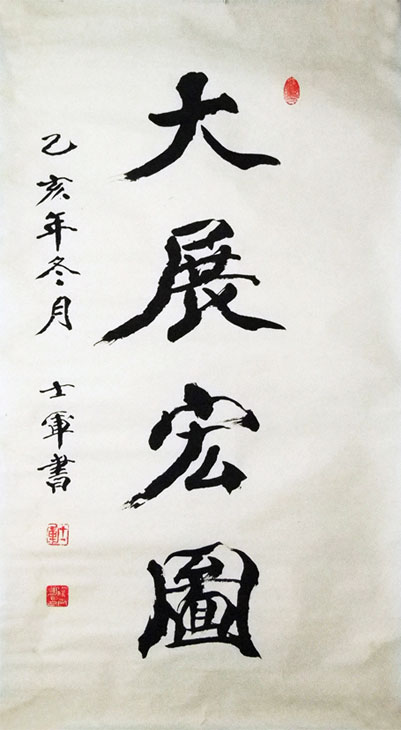 大展宏圖
乙亥年冬月 士軍書